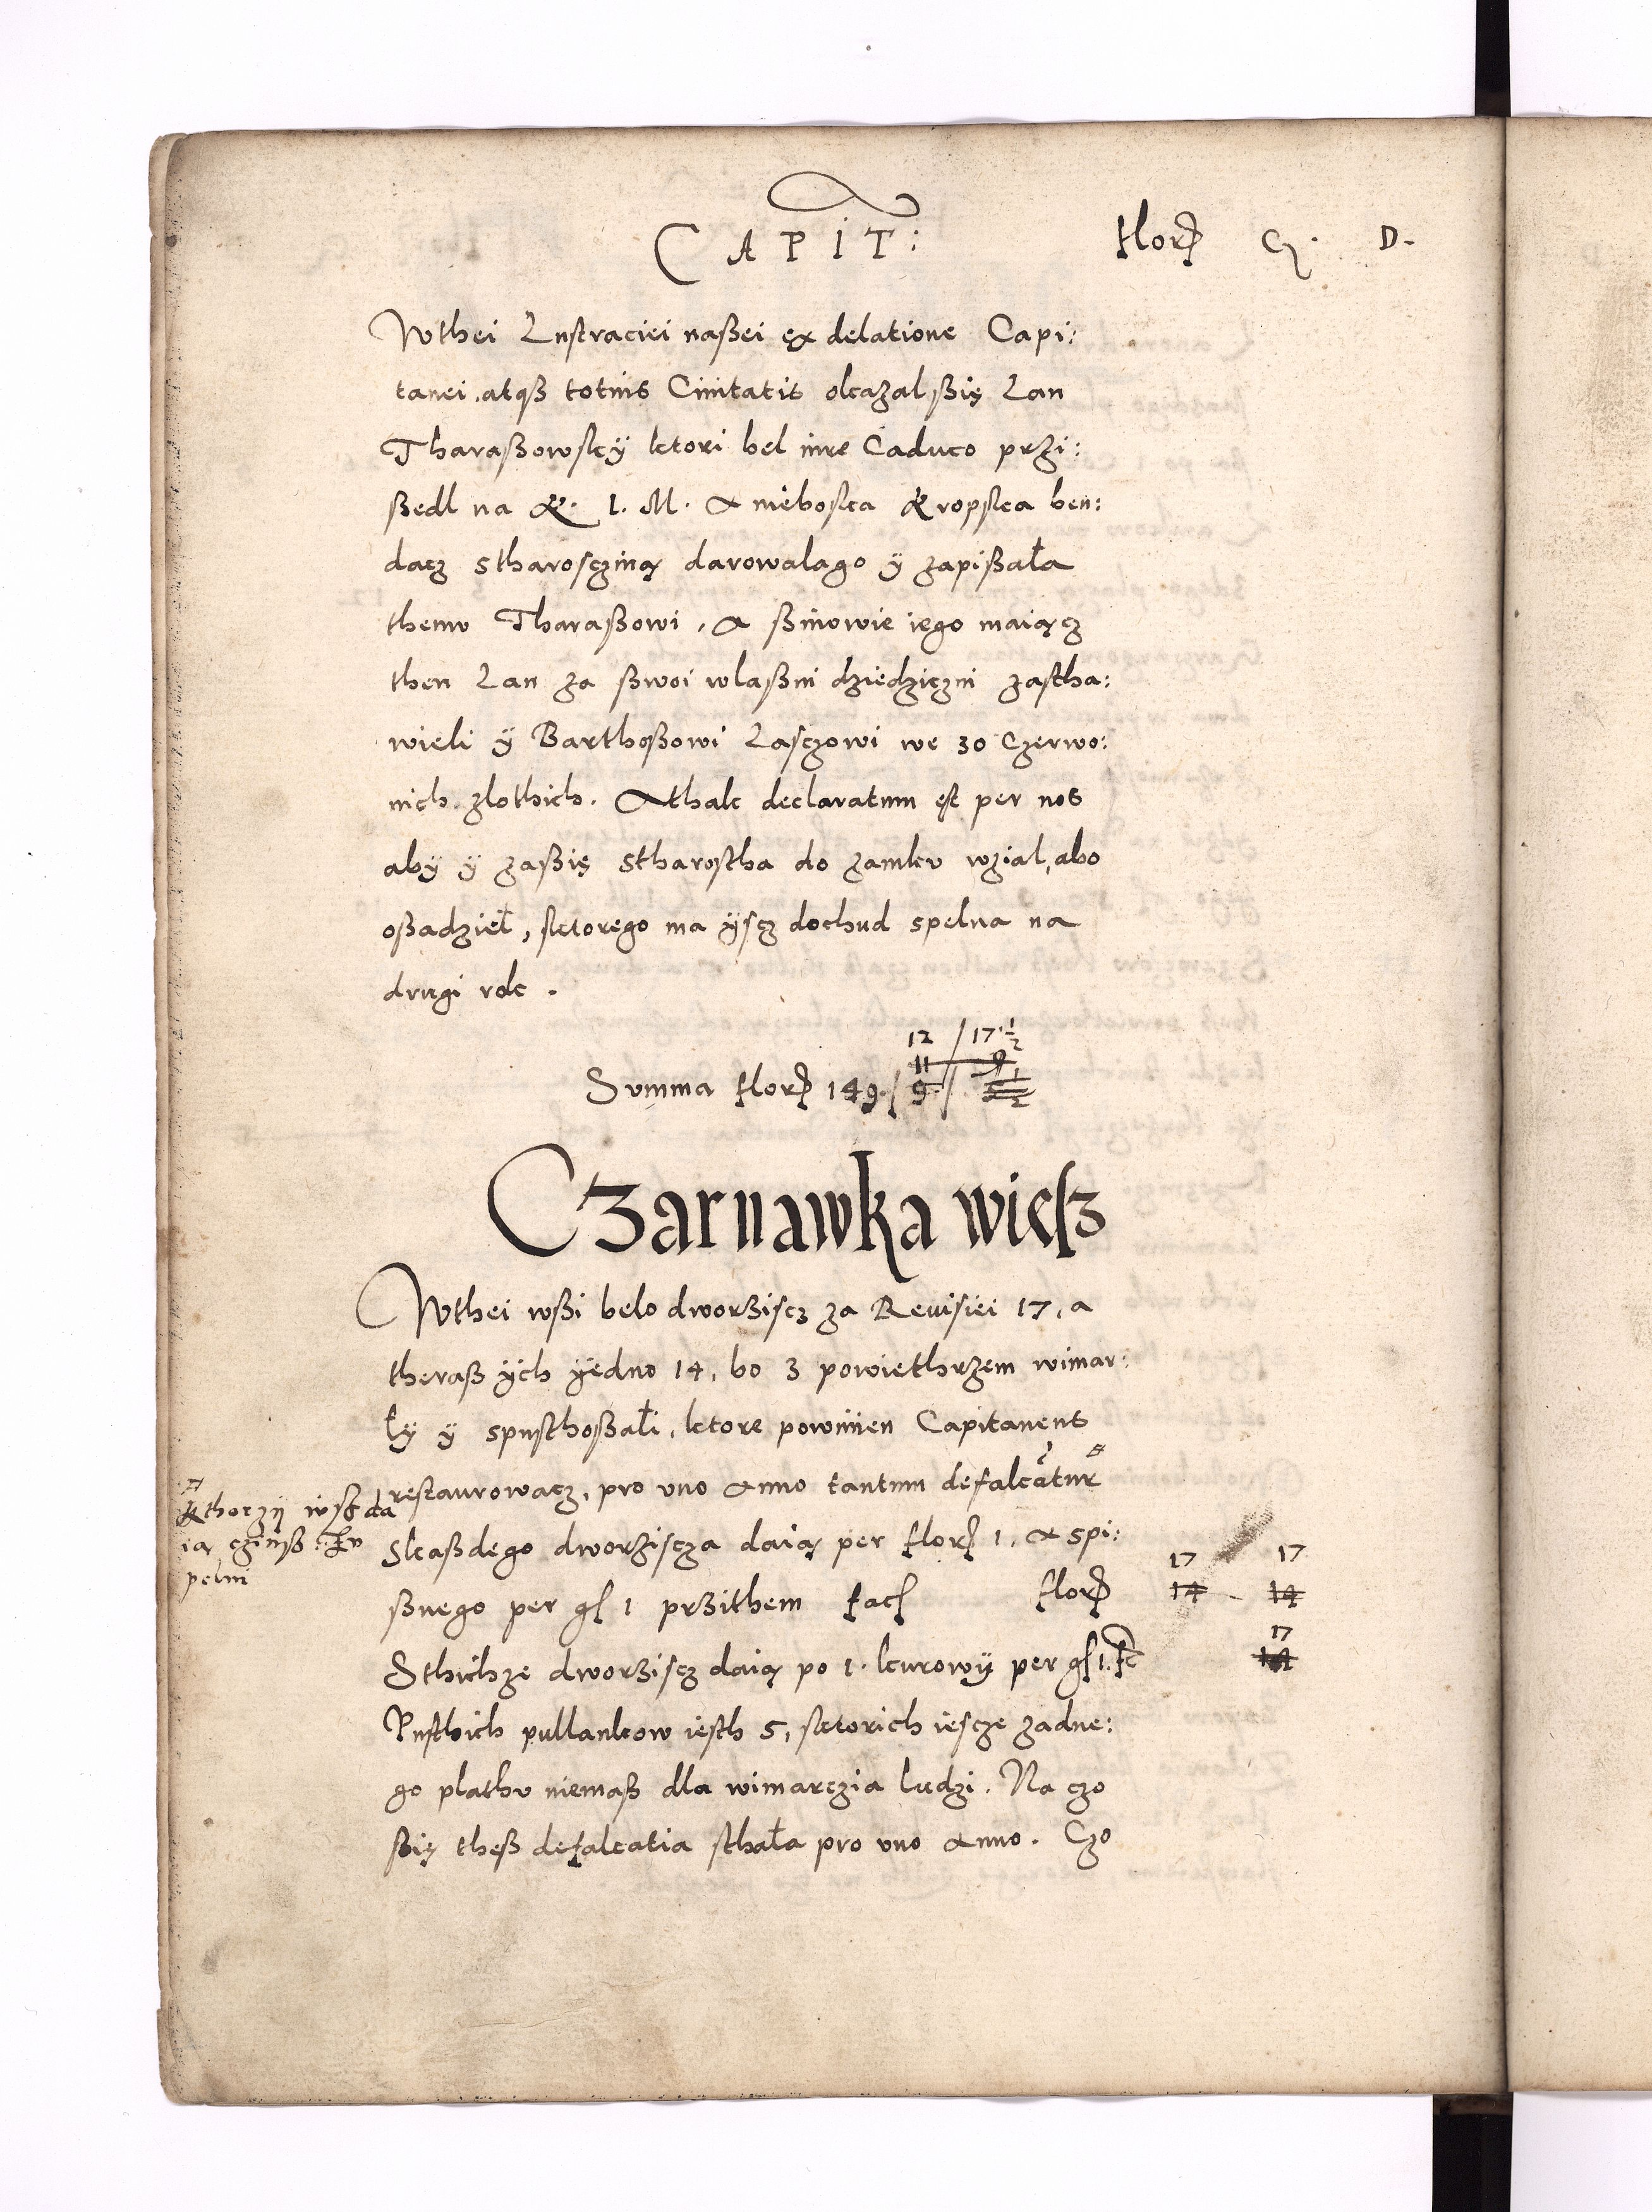 CAPIT: flor G. D.
Wthei Lustraciei naßei ex delatione Capi:
tanei, atqß totius Ciuitatis okazal ßię Lan
Tharaßowsky ktori bel iure Caduco przi:
ßedl na K. I. M. A nieboska Kropska ben:
dacz stharoscziną darowalago ÿ zapißała
themu Tharaßowi, A ßinowie iego maiącz
then Lan za ßwoi wlaßni dziedziczni zastha:
wieli ÿ Barthoßowi Lasczowi we 30 Czerwo:
nich zlothich. Athak declaratum est per nos
abÿ ÿ zaßię stharostha do zamku wzial, abo
oßadzieł, sktorego ma ÿscz dochud spelna na
drugi rok.
12 / 17 ½
11 9
Summa flor 149 / 9 /
Czarnawka wiesz
Wthei wßi belo dworziscz za Reuisiei 17, a
theraß ÿch ÿedno 14, bo 3 powiethrzem wimar:
lÿ ÿ spusthoßali, ktore powinien Capitaneus
restaurowacz, pro uno Anno tantum defalcatur
Kthorzÿ wß da
ią czinß zu
pelni
Skaßdego dworziscza daią per flor 1, A spi:
17 17
ßnego per gſ 1 przithem facſ flor 14 - 14
17
Sthichze dworziscz daią po 1. kurowÿ per gſ 1. fc 14
Pusthich pullankow iesth 5, sktorich iescze zadne:
go plathu niemaß dla wimarczia ludzi. Na czo
ßię theß defalcatia sthała pro uno Anno. Czo